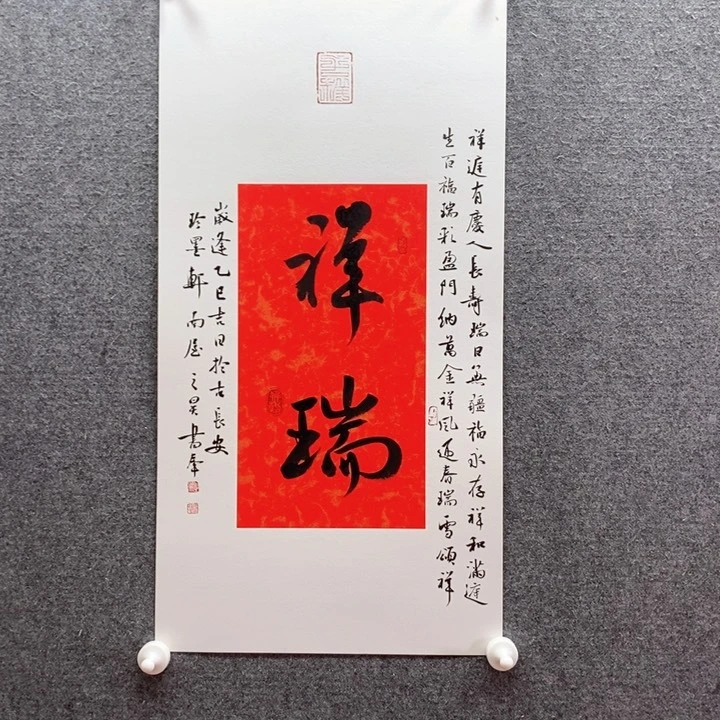 祥瑞
祥庭有慶人長壽瑞日無疆福永存祥和滿庭
生百福瑞彩盈門納萬金祥風迎春瑞雪頌祥
歲逢乙巳吉日於古長安
珍墨軒南屋之昊書奉